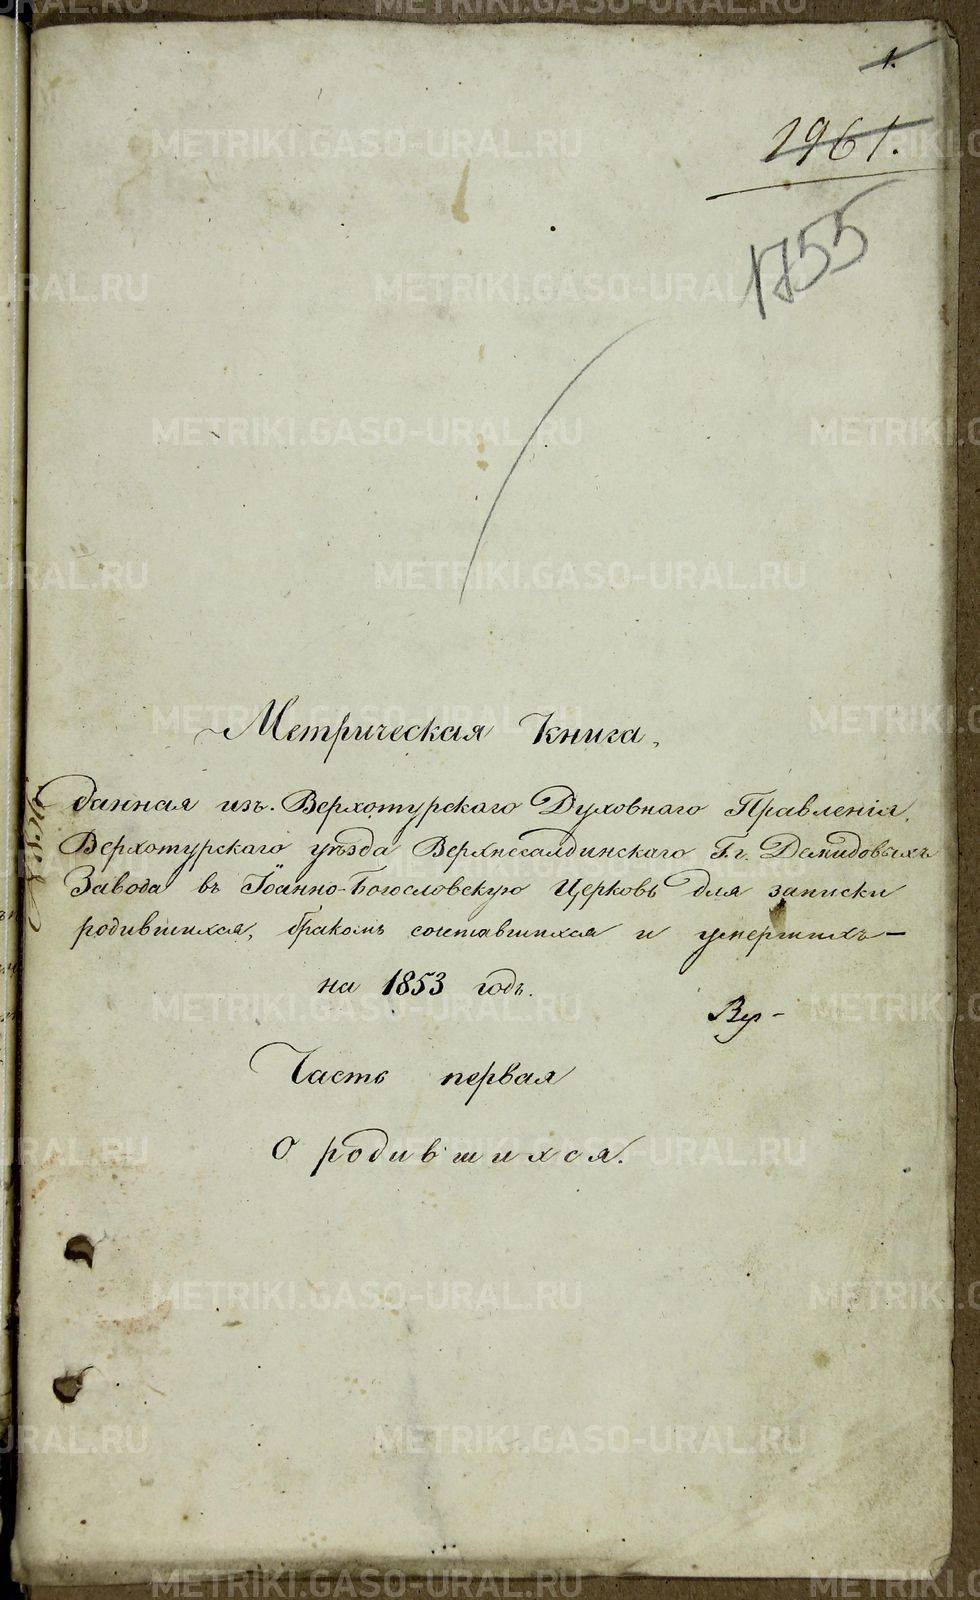 1.
1961.
1755
Метрическая Книга,
данная изъ Верхотурскаго Духовнаго Правленія,
Верхотурскаго уѣзда Верхнесалдинскаго Г.г. Демидовыхъ
Завода въ Іоанно-Богословскую Церковь для записки
родившихся, бракомъ сочетавшихся и умершихъ —
на 1853 годъ.
Часть первая
О родившихся.
METRIKI.GASO-URAL.RU